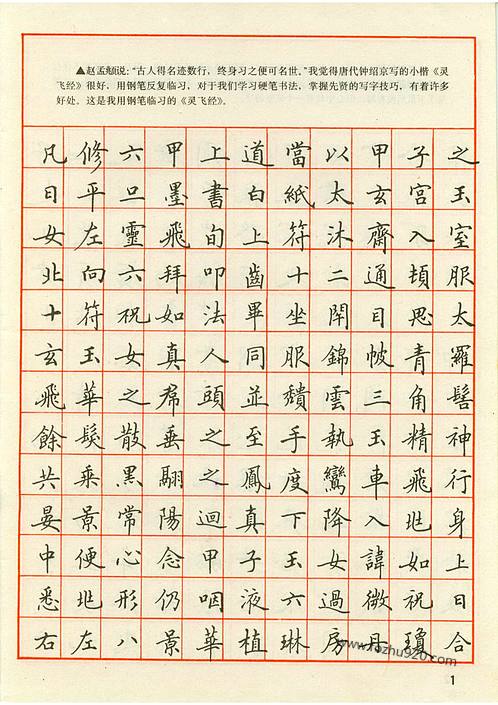 ▲赵孟頫说:“古人得名迹数行,终身习之便可名世。”我觉得唐代钟绍京写的小楷《灵
飞经》很好,用钢笔反复临习,对于我们学习硬笔书法,掌握先贤的写字技巧,有着许多
好处。这是我用钢笔临习的《灵飞经》。
凡修六甲上道當以甲子之
日平旦墨書白紙太玄宮玉
女左靈飛旬上符沐齋入室
北向六拜叩齒十二通頓服
十符祝如法畢坐閉目思太
玄玉女真人同服錦帔青羅
飛華之帬頭並頹雲三角髻
餘髮散垂之至手執玉精神
共乘黑翮之鳳度鸞車飛行
晏景常陽迴真下降入兆身
中便心念甲子玉女諱如上
悉兆形仍咽液六過微祝曰
右左八景華植琳房丹瓊合
www.rozhu920.com
1